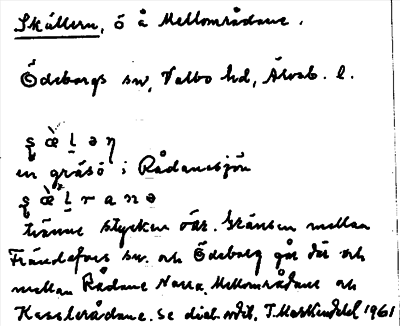 Skällern, ö å Mellområdane.
Ödeborgs sn, Valbo hd, Älvsb. l.
ʂ æ̀ ḷ ə ŋ
en gräsö i Rådanesjön
ʂ æ̀ ḷ r a n ə
tvänne stycken öar. Gränsen mellan
Frändefors sn. och Ödeborg går där och
mellan Rådane Narra, Mellområdane och
Kasslerådane. Se dial. ordb. T. 1961